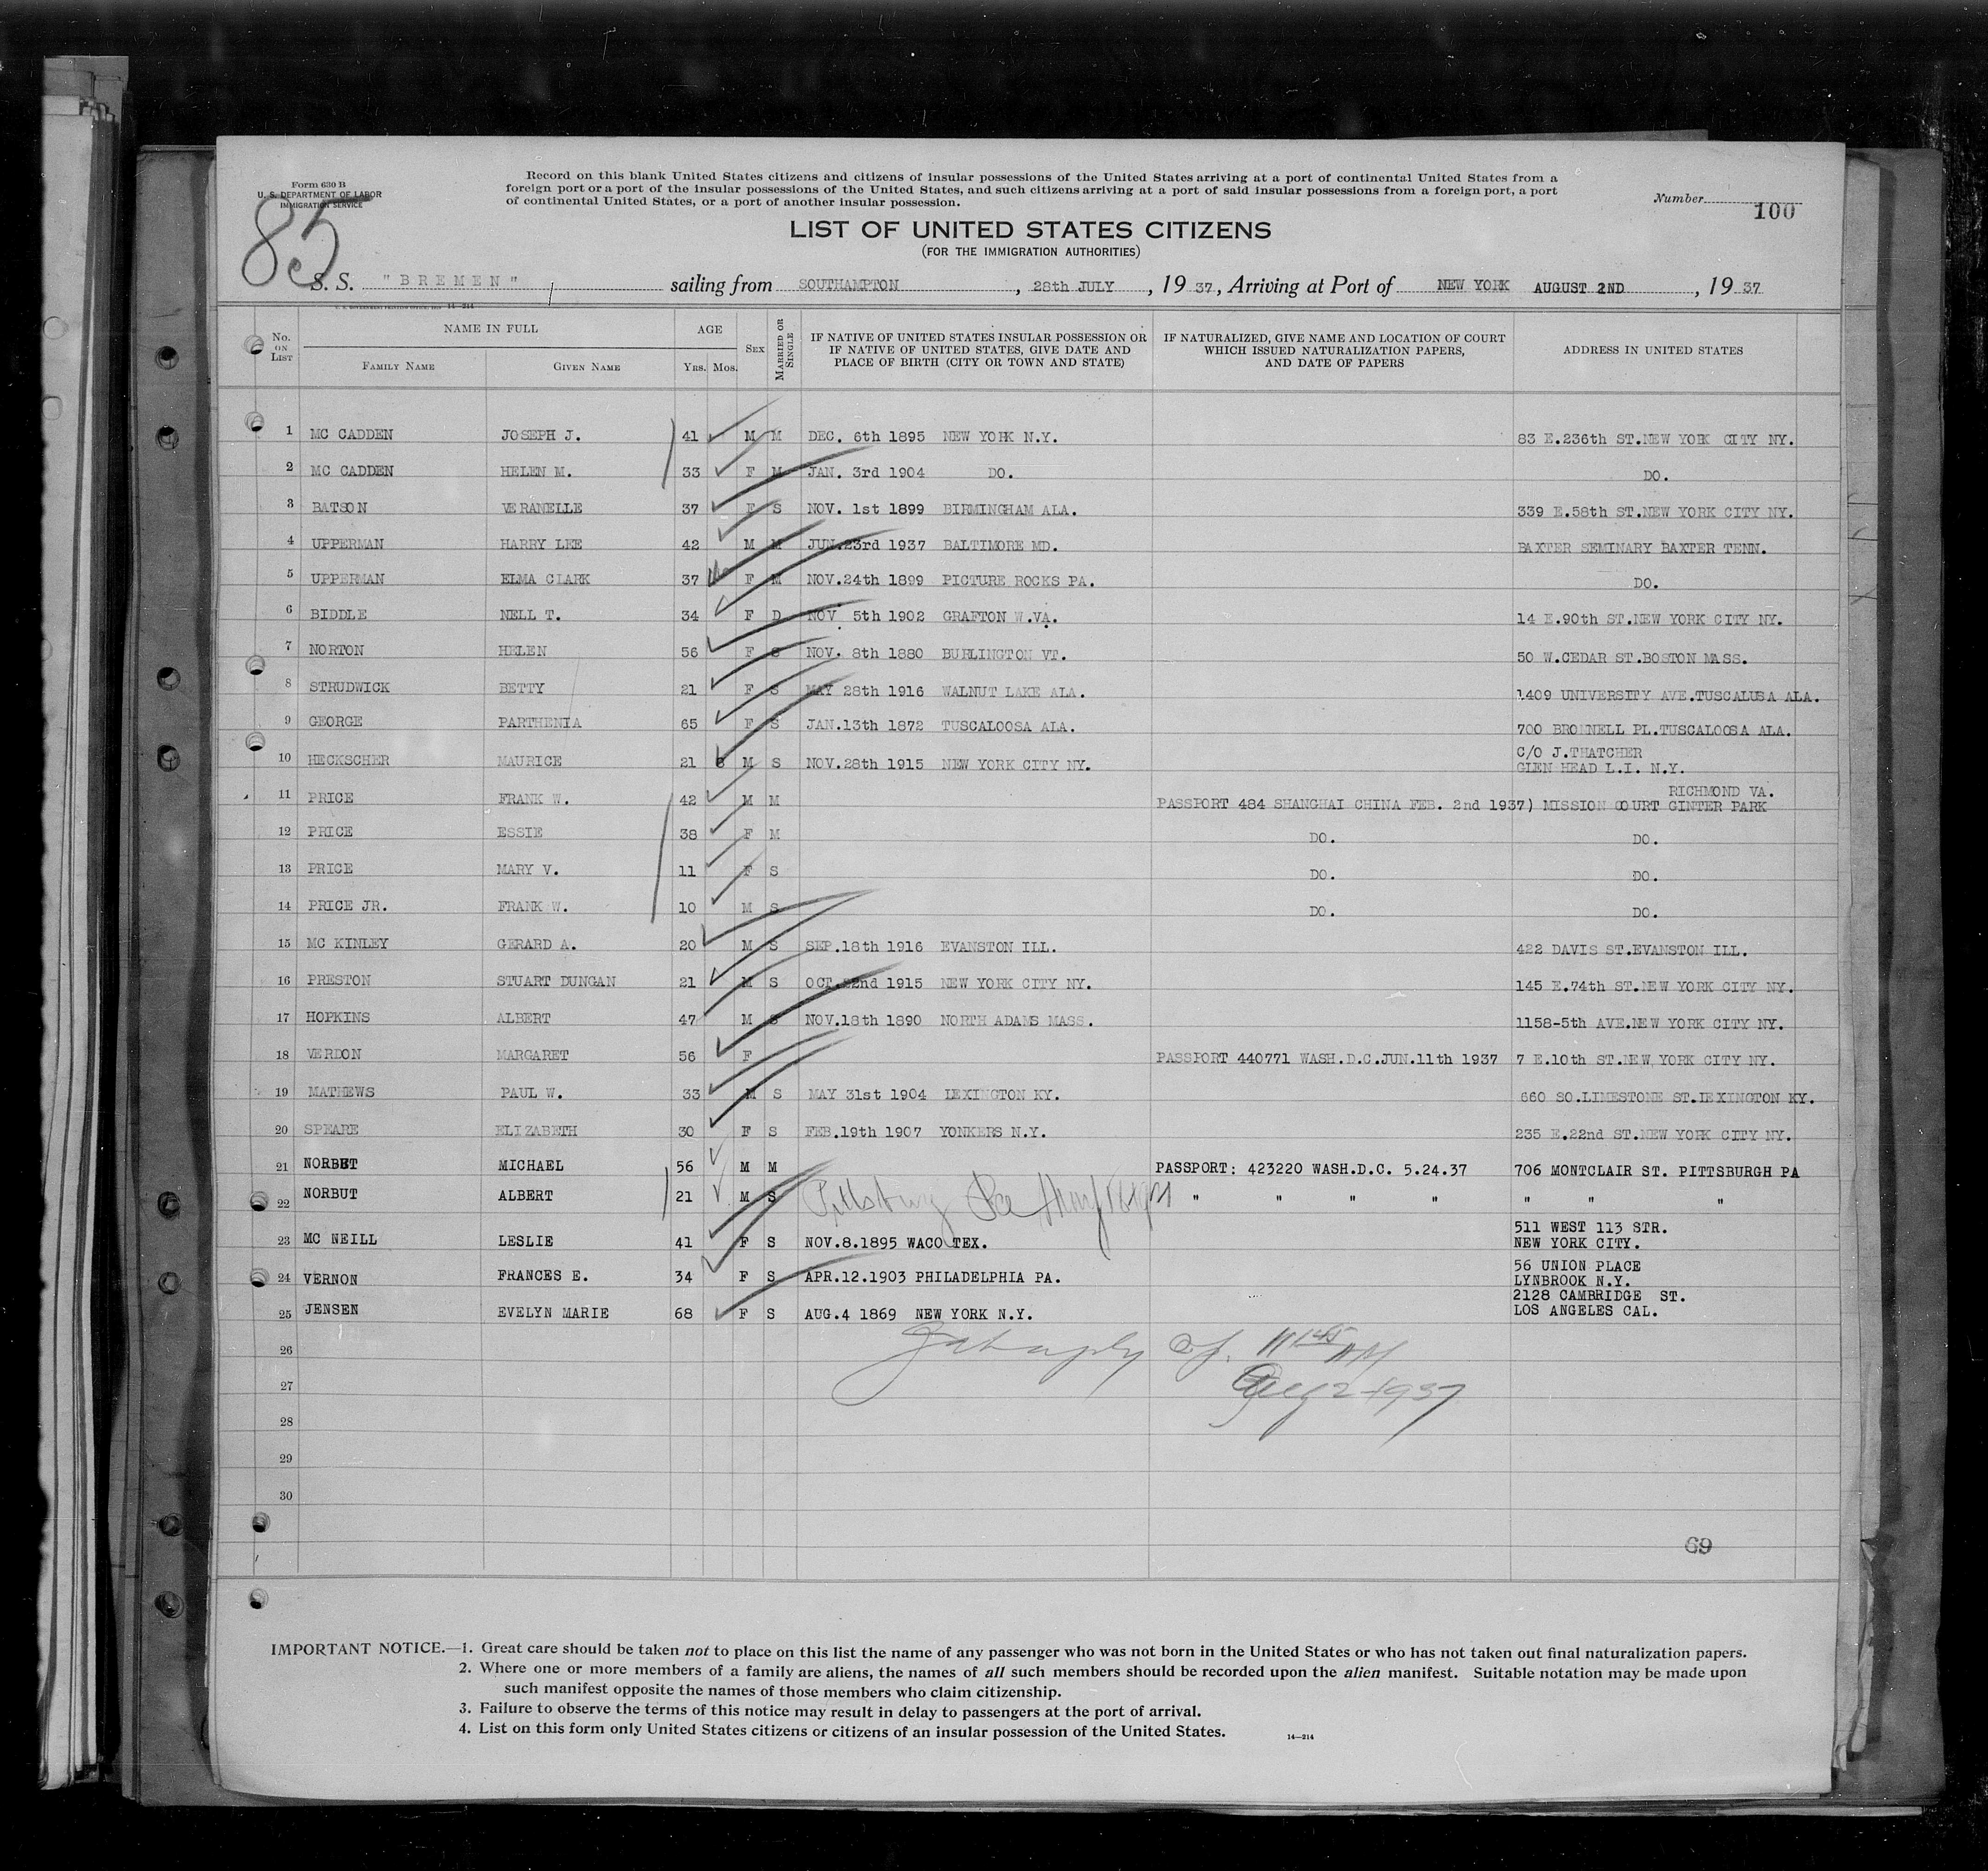 Form 630 B
U. S. DEPARTMENT OF LABOR
IMMIGRATION SERVICE
85
Record on this blank United States citizens and citizens of insular possessions of the United States arriving at a port of continental United States from a
foreign port or a port of the insular possessions of the United States, and such citizens arriving at a port of said insular possessions from a foreign port, a port
of continental United States, or a port of another insular possession.
Number 100
LIST OF UNITED STATES CITIZENS
(FOR THE IMMIGRATION AUTHORITIES)
S. S. "BREMEN" sailing from SOUTHAMPTON, 28th JULY, 1937, Arriving at Port of NEW YORK AUGUST 2ND, 1937
No. ON LIST
NAME IN FULL
FAMILY NAME GIVEN NAME
AGE
YRS. MOS.
SEX
MARRIED OR SINGLE
IF NATIVE OF UNITED STATES INSULAR POSSESSION OR
IF NATIVE OF UNITED STATES, GIVE DATE AND
PLACE OF BIRTH (CITY OR TOWN AND STATE)
IF NATURALIZED, GIVE NAME AND LOCATION OF COURT
WHICH ISSUED NATURALIZATION PAPERS,
AND DATE OF PAPERS
ADDRESS IN UNITED STATES
1 MC CADDEN JOSEPH J. 41 M M DEC. 6th 1895 NEW YORK N.Y. 83 E.236th ST.NEW YORK CITY NY.
2 MC CADDEN HELEN M. 33 F M JAN. 3rd 1904 DO. DO.
3 BATSON VERANELLE 37 F S NOV. 1st 1899 BIRMINGHAM ALA. 339 E.58th ST.NEW YORK CITY NY.
4 UPPERMAN HARRY LEE 42 M M JUN.23rd 1937 BALTIMORE MD. BAXTER SEMINARY BAXTER TENN.
5 UPPERMAN ELMA CLARK 37 F M NOV.24th 1899 PICTURE ROCKS PA. DO.
6 BIDDLE NELL T. 34 F D NOV 5th 1902 GRAFTON W.VA. 14 E.90th ST.NEW YORK CITY NY.
7 NORTON HELEN 56 F S NOV. 8th 1880 BURLINGTON VT. 50 W.CEDAR ST.BOSTON MASS.
8 STRUDWICK BETTY 21 F S MAY 28th 1916 WALNUT LAKE ALA. 1409 UNIVERSITY AVE.TUSCALUSA ALA.
9 GEORGE PARTHENIA 65 F S JAN.13th 1872 TUSCALOOSA ALA. 700 BRONNELL PL.TUSCALOOSA ALA.
10 HECKSCHER MAURICE 21 8 M S NOV.28th 1915 NEW YORK CITY NY. C/O J.THATCHER
GLEN HEAD L.I. N.Y.
RICHMOND VA.
11 PRICE FRANK W. 42 M M PASSPORT 484 SHANGHAI CHINA FEB. 2nd 1937) MISSION COURT GINTER PARK
12 PRICE ESSIE 38 F M DO. DO.
13 PRICE MARY V. 11 F S DO. DO.
14 PRICE JR. FRANK W. 10 M S DO. DO.
15 MC KINLEY GERARD A. 20 M S SEP.18th 1916 EVANSTON ILL. 422 DAVIS ST.EVANSTON ILL.
16 PRESTON STUART DUNGAN 21 M S OCT.22nd 1915 NEW YORK CITY NY. 145 E.74th ST.NEW YORK CITY NY.
17 HOPKINS ALBERT 47 M S NOV.18th 1890 NORTH ADAMS MASS. 1158-5th AVE.NEW YORK CITY NY.
18 VERDON MARGARET 56 F PASSPORT 440771 WASH.D.C.JUN.11th 1937 7 E.10th ST.NEW YORK CITY NY.
19 MATHEWS PAUL W. 33 M S MAY 31st 1904 LEXINGTON KY. 660 SO.LIMESTONE ST.LEXINGTON KY.
20 SPEARE ELIZABETH 30 F S FEB.19th 1907 YONKERS N.Y. 235 E.22nd ST.NEW YORK CITY NY.
21 NORBUT MICHAEL 56 M M PASSPORT: 423220 WASH.D.C. 5.24.37 706 MONTCLAIR ST. PITTSBURGH PA
22 NORBUT ALBERT 21 M S Pittsburg Pa " " " " " " "
23 MC NEILL LESLIE 41 F S NOV.8.1895 WACO TEX. 511 WEST 113 STR.
NEW YORK CITY.
24 VERNON FRANCES E. 34 F S APR.12.1903 PHILADELPHIA PA. 56 UNION PLACE
LYNBROOK N.Y.
25 JENSEN EVELYN MARIE 68 F S AUG.4 1869 NEW YORK N.Y. 2128 CAMBRIDGE ST.
LOS ANGELES CAL.
26
11 45 AM
27
Aug 2-1937
28
29
30
69
IMPORTANT NOTICE.—1. Great care should be taken not to place on this list the name of any passenger who was not born in the United States or who has not taken out final naturalization papers.
2. Where one or more members of a family are aliens, the names of all such members should be recorded upon the alien manifest. Suitable notation may be made upon
such manifest opposite the names of those members who claim citizenship.
3. Failure to observe the terms of this notice may result in delay to passengers at the port of arrival.
4. List on this form only United States citizens or citizens of an insular possession of the United States.
14—214